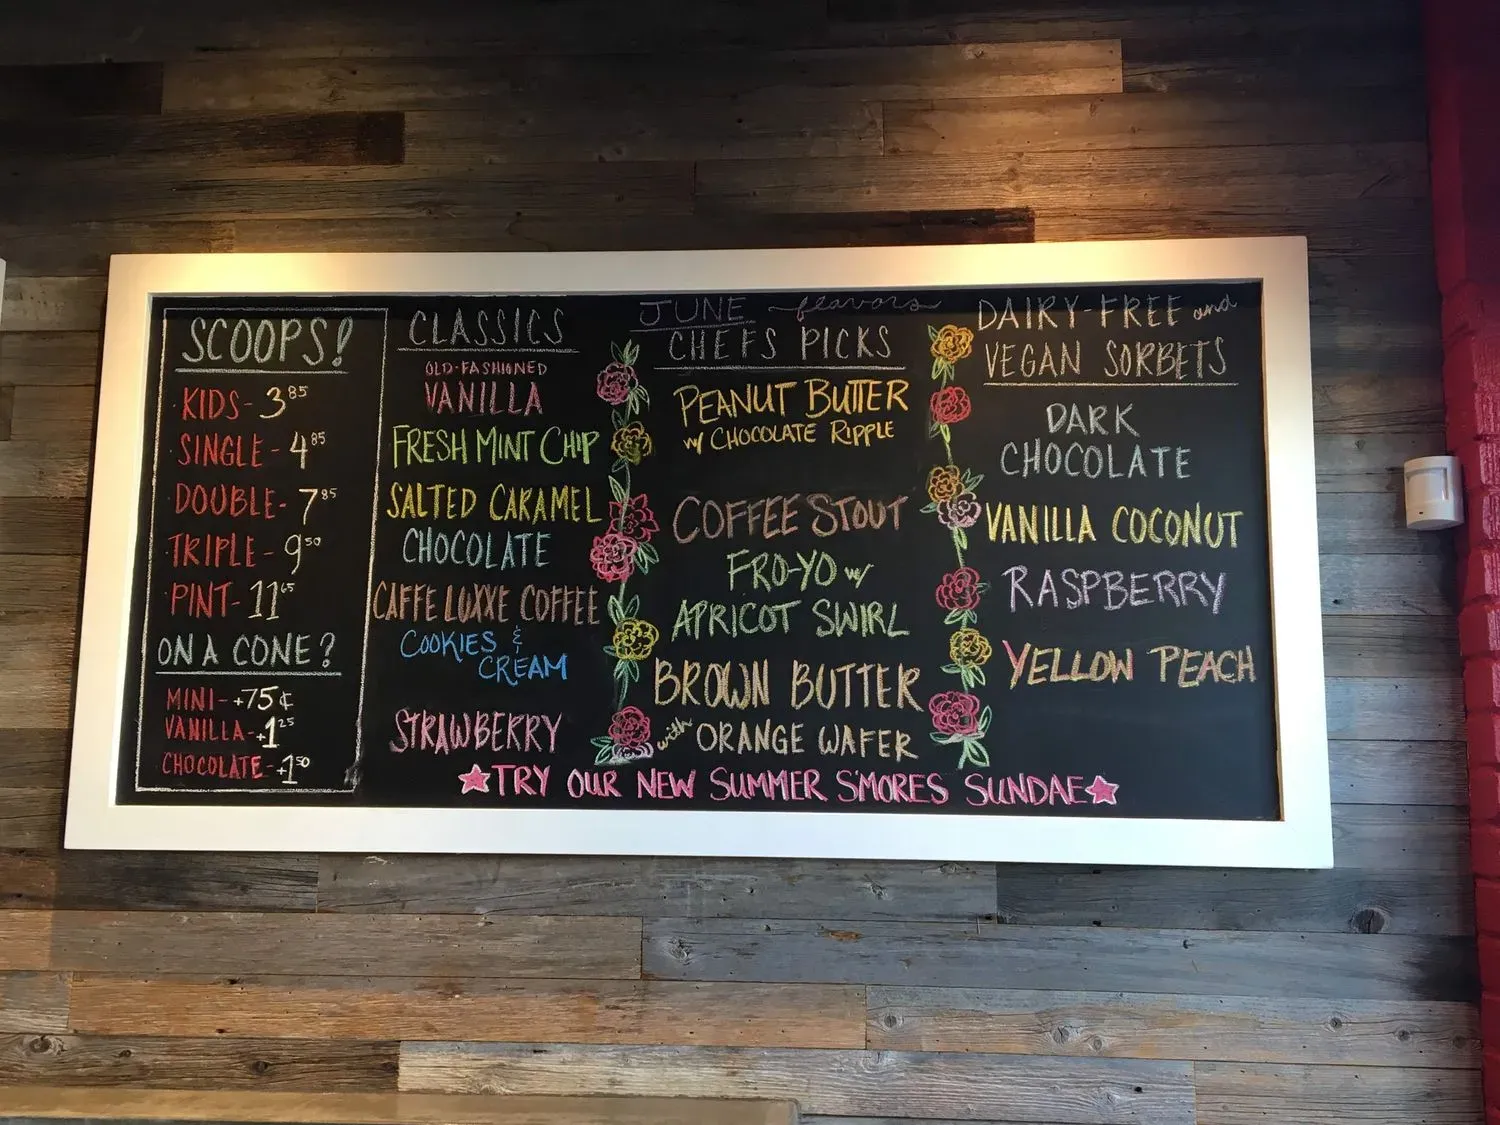 SCOOPS!
KIDS - 3.85
SINGLE - 4.85
DOUBLE - 7.85
TRIPLE - 9.50
PINT - 11.65
ON A CONE?
MINI - +75¢
VANILLA - +1.25
CHOCOLATE - +1.50
CLASSICS
OLD-FASHIONED
VANILLA
FRESH MINT CHIP
SALTED CARAMEL
CHOCOLATE
CAFFE LUXXE COFFEE
COOKIES &
CREAM
STRAWBERRY
JUNE flavors
CHEFS PICKS
PEANUT BUTTER
w/ CHOCOLATE RIPPLE
COFFEE STOUT
FRO-YO w/
APRICOT SWIRL
BROWN BUTTER
with ORANGE WAFER
DAIRY-FREE and
VEGAN SORBETS
DARK
CHOCOLATE
VANILLA COCONUT
RASPBERRY
YELLOW PEACH
TRY OUR NEW SUMMER S'MORES SUNDAE